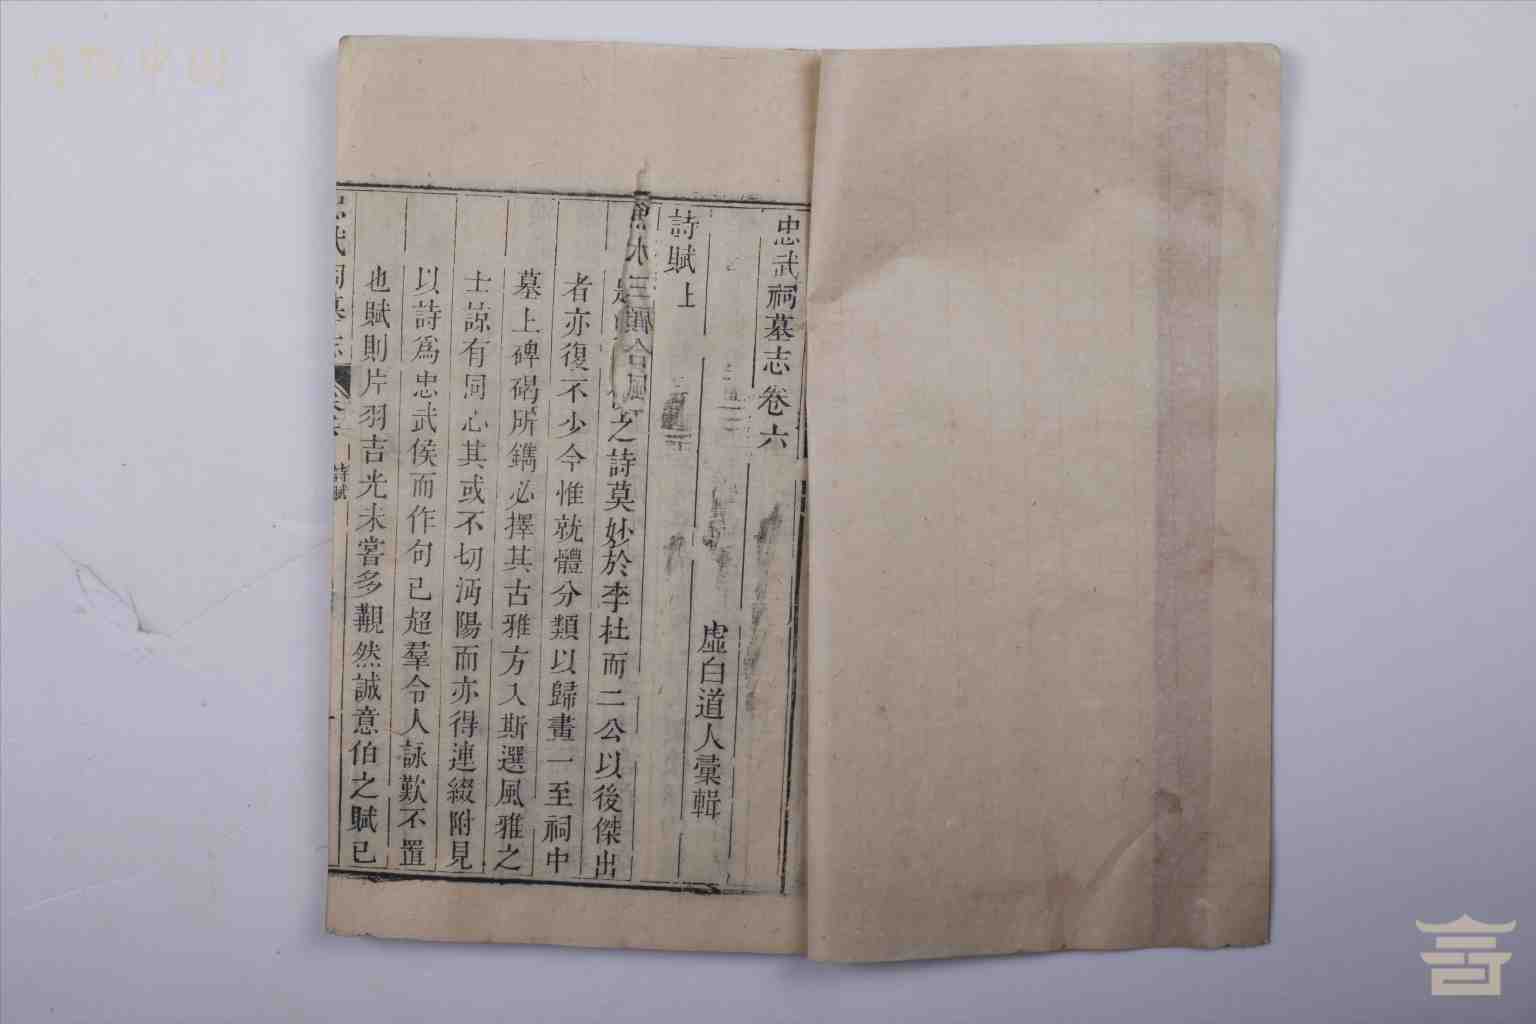 忠武祠墓志卷六
虛白道人彙輯
詩賦上
魚水三顧合風
之詩莫妙於李杜而二公以後傑出
者亦復不少今惟就體分類以歸畫一至祠中
墓上碑碣所鐫必擇其古雅方入斯選風雅之
士諒有同心其或不切沔陽而亦得連綴附見
以詩爲忠武侯而作句已超羣令人詠歎不置
也賦則片羽吉光未嘗多覯然誠意伯之賦已
忠武祠墓志
詩賦